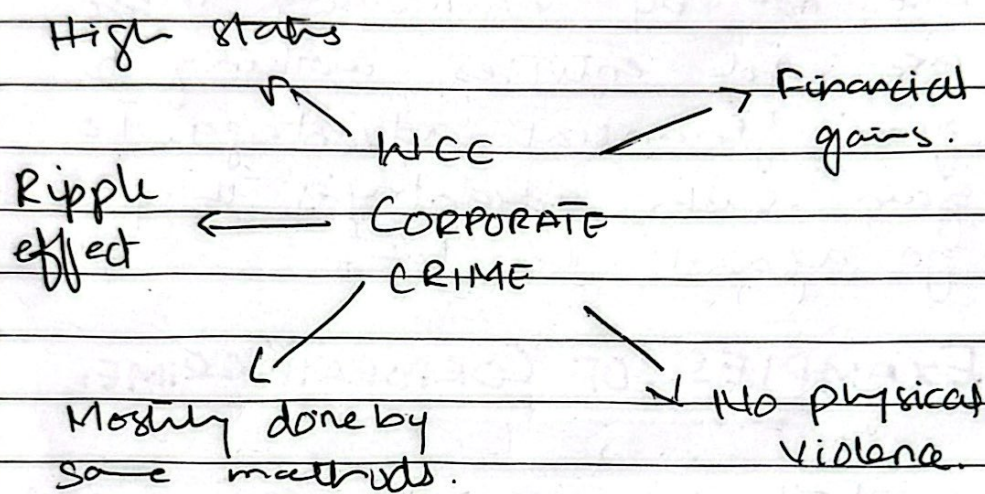 High status
Financial
gains.
WCC
CORPORATE
CRIME
Ripple
effect
Mostly done by
same methods.
No physical
violence.